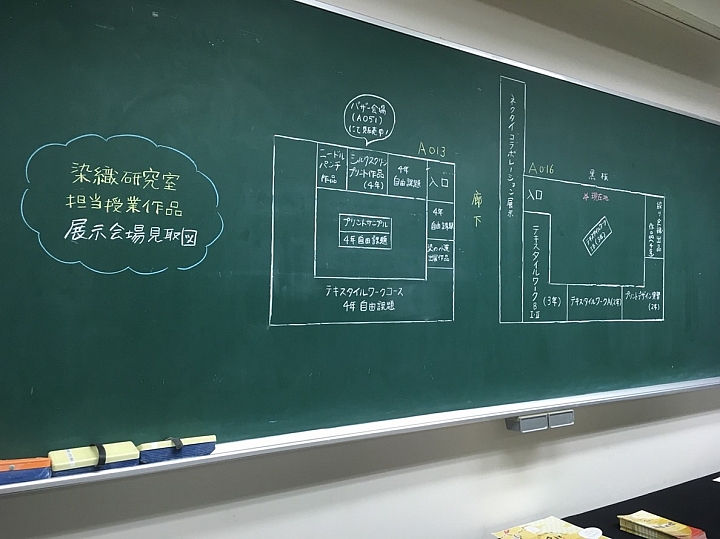 染織研究室
担当授業作品
展示会場見取図
バザー会場
(A051)
にて販売中!
A013
ニードル
パンチ
作品
シルクスクリーン
プリント作品
(4年)
4年
自由課題
入口
4年
自由課題
プリントサンプル
4年自由課題
出展作品
テキスタイルワークコース
4年自由課題
廊下
ネクタイコラボレーション展示
A016
黒板
入口
現在地
テキスタイルワークB
I・II
(3年)
テキスタイルワークA(2年)
プリントデザイン演習
(2年)